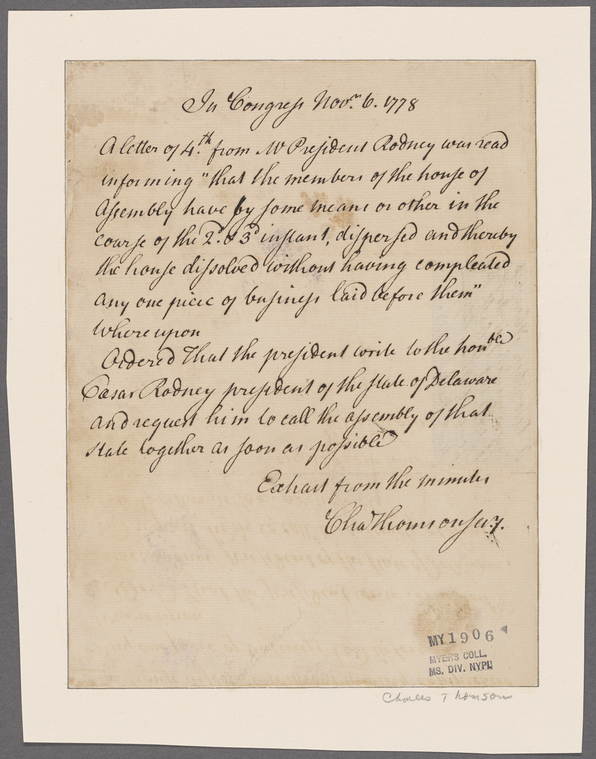 In Congress Novr. 6. 1778
A letter of 4.th from Mr President Rodney was read
informing "that the members of the house of
Assembly have by some means or other in the
course of the 2d. & 3d instant, dispersed and thereby
the house dissolved without having compleated
any one piece of business laid before them"
Whereupon
Ordered That the president write to the honble
Cæsar Rodney president of the state of Delaware
and request him to call the assembly of that
state together as soon as possible
Extract from the minutes
Cha Thomson secy.
MY 1906
MYERS COLL.
MS. DIV. NYPL
Charles Thomson